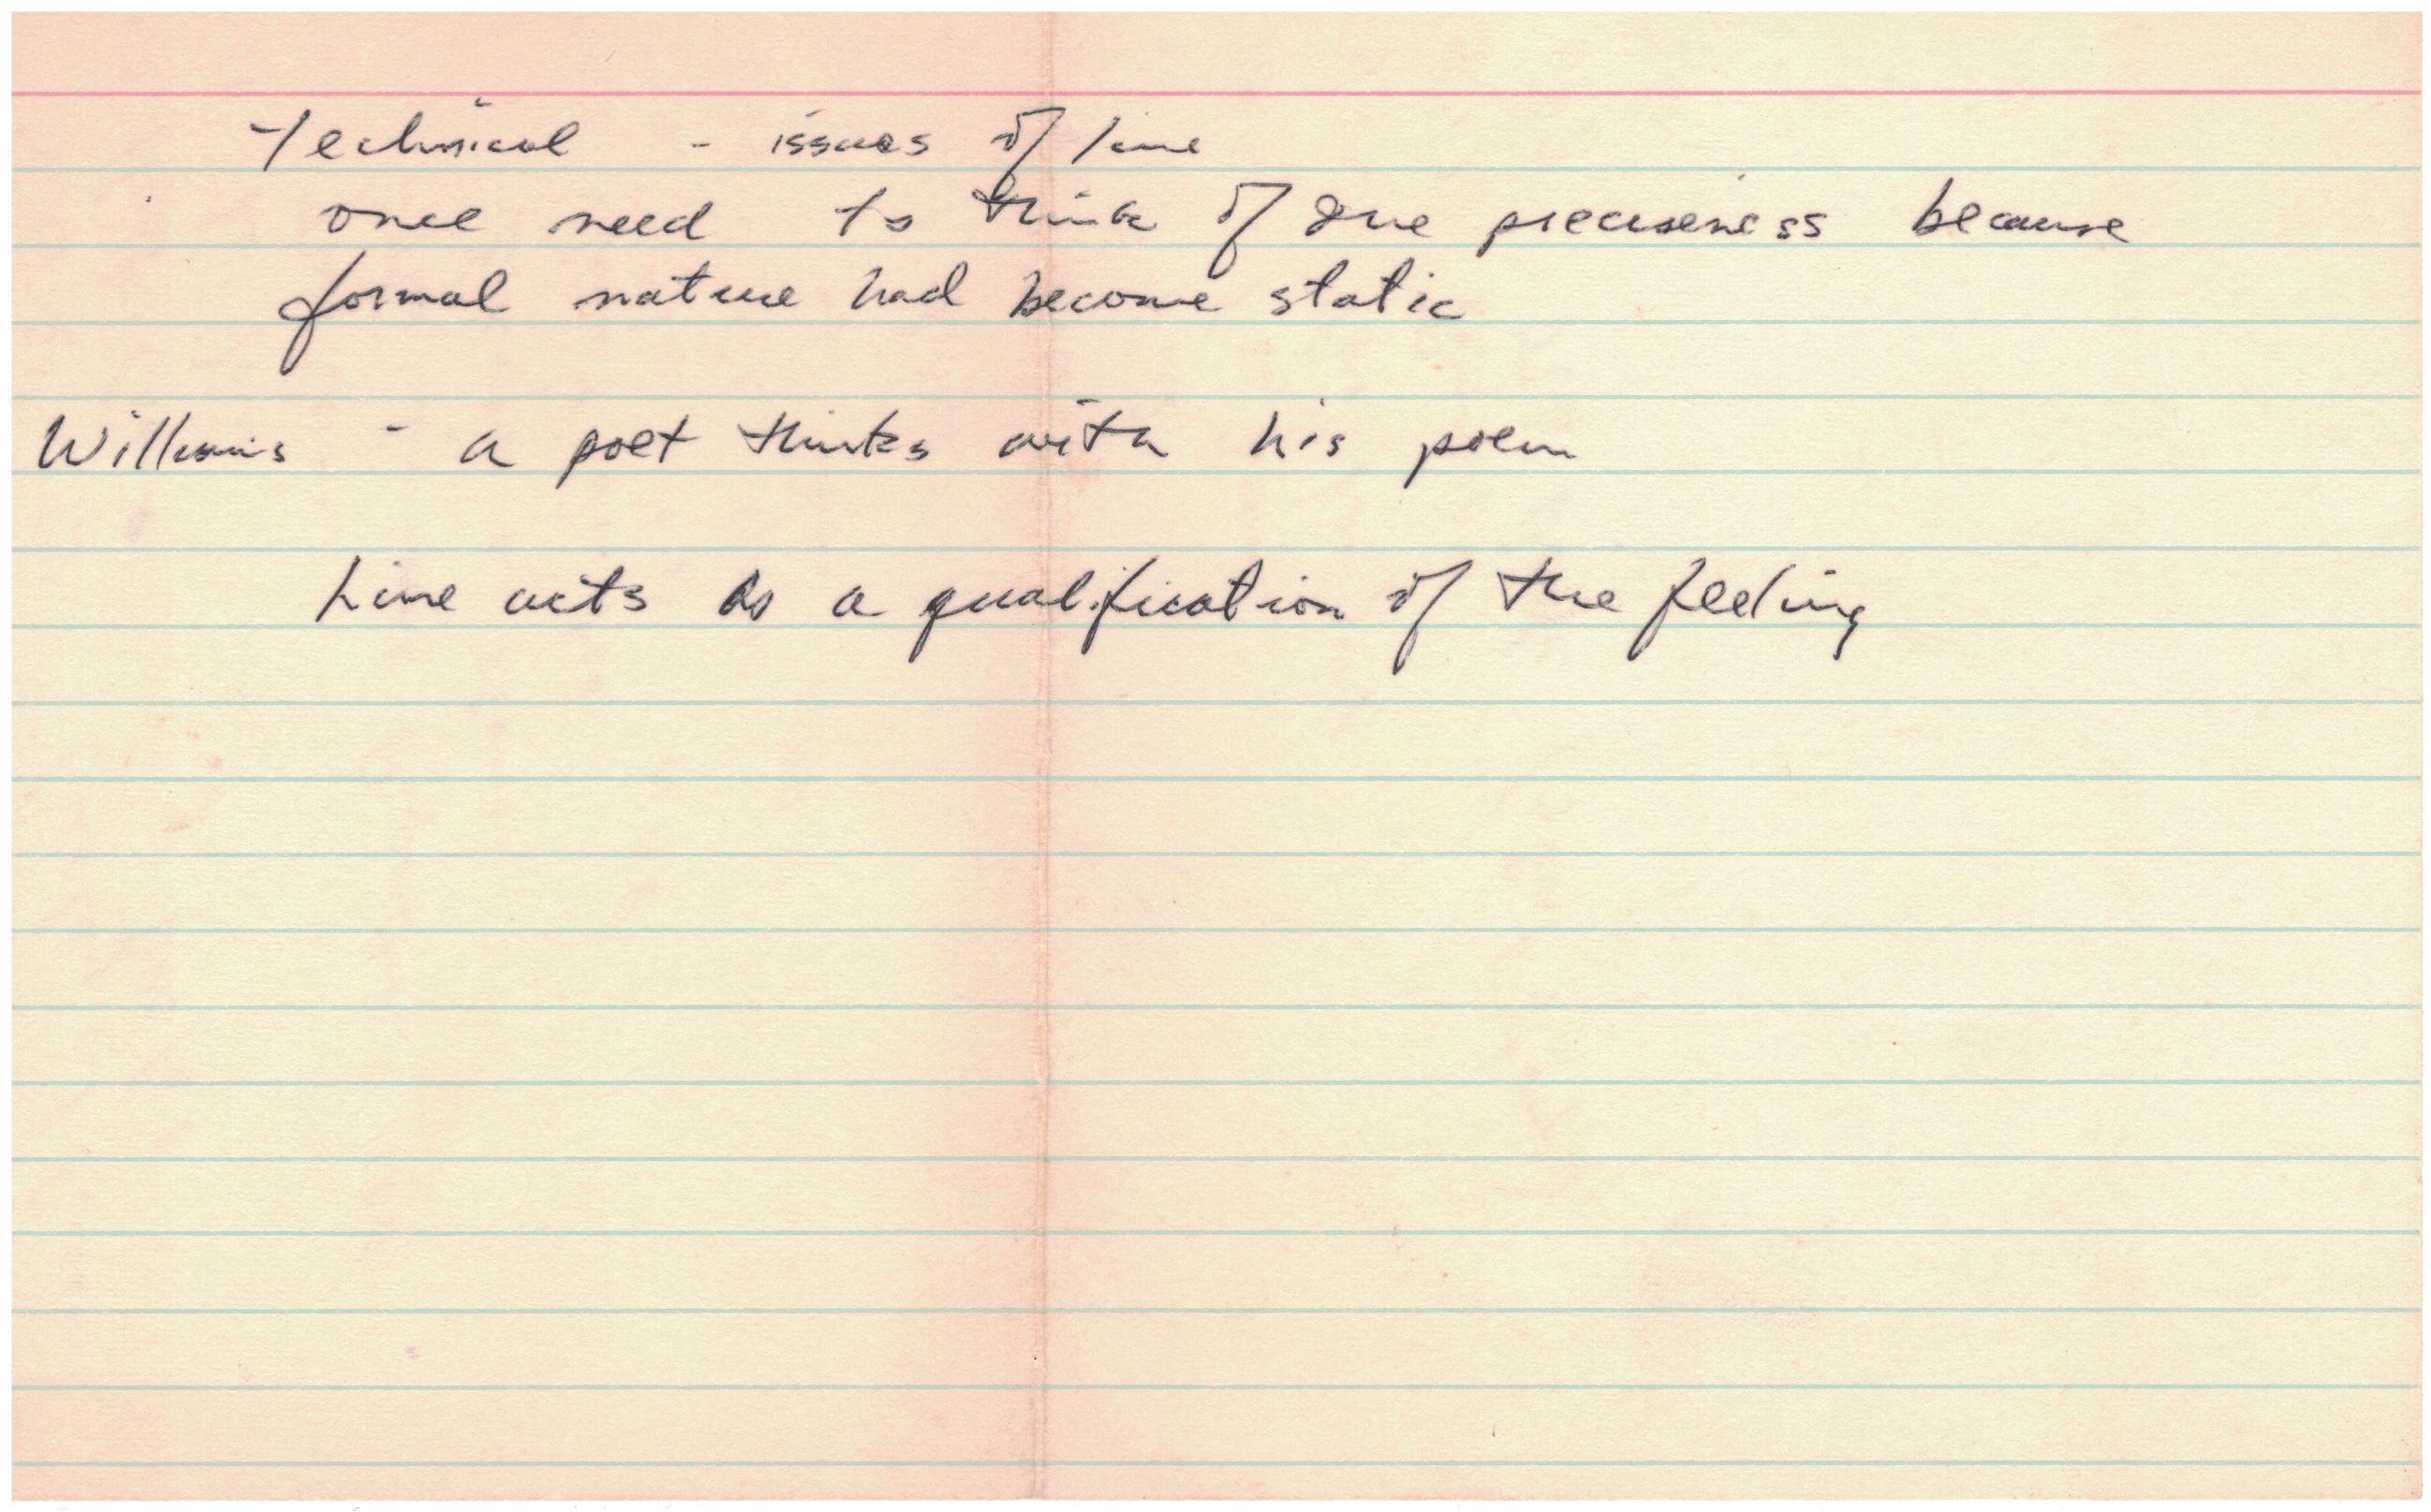 Technical - issues of line
once need to think of preciseness because
formal nature had become static
Williams - a poet thinks with his poem
Line acts as a qualification of the feeling